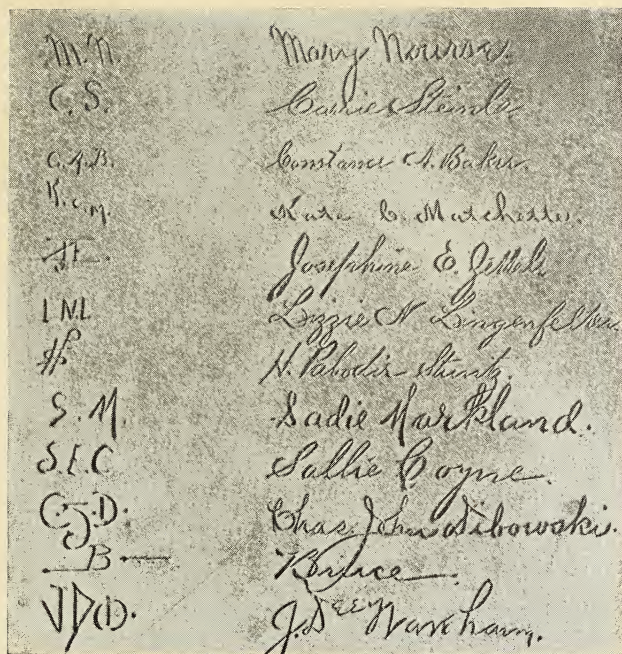 M.N. Mary Nourse.
C.S. Carrie Steinle
C.A.B. Constance A. Baker.
K.C.M. Kate C. Matchette.
Josephine E. Zettel
L.N.L. Lizzie N Lingenfelter
H. Pabodie Stuntz.
S.M. Sadie Markland.
S.E.C Sallie Coyne.
C.J.D. Chas. John Dibowski.
B Bruce.
J. Dee Wareham.